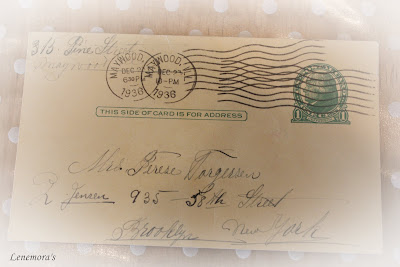 315 Pine Street
Maywood
MAYWOOD, DEC PM 1936
MAYWOOD, ILL. DEC PM 1936
THIS SIDE OF CARD IS FOR ADDRESS
1 1
Mrs. Torgersen
Jensen 935 - 58th Street
Brooklyn New York
Lenemora's